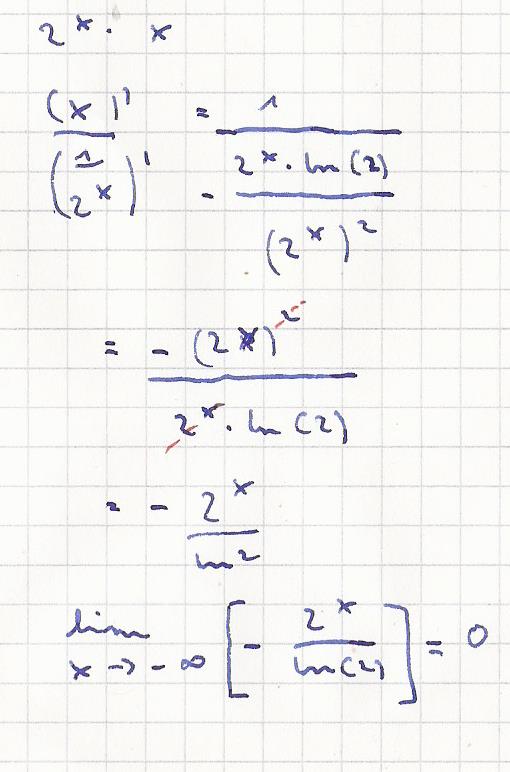 2^x · x
(x)' / (1/2^x)' = 1 / (- (2^x · ln(2)) / (2^x)^2)
= - (2^x)^2 / (2^x · ln(2))
= - 2^x / ln2
lim x→-∞ [- 2^x / ln(2)] = 0